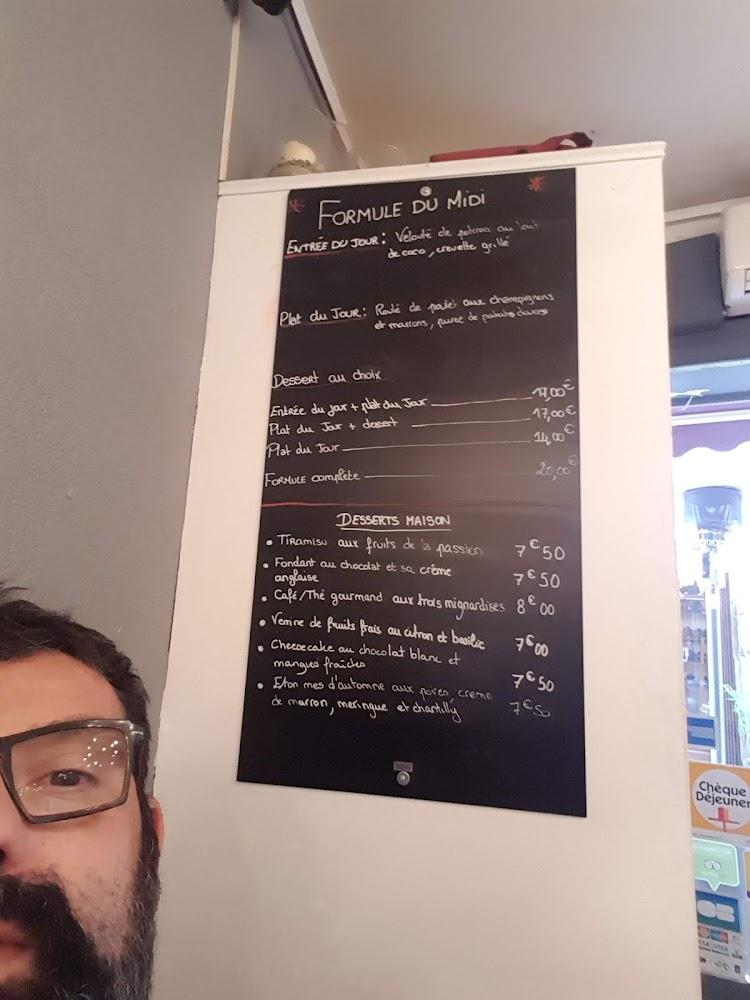 FORMULE DU MIDI
ENTRÉE DU JOUR: Velouté de potiron au lait
de coco, crevette grillé
Plat du JOUR: Roulé de poulet aux champignons
et marrons, purée de patates douces
Dessert au choix
Entrée du jour + plat du Jour 17,00€
Plat du Jour + dessert 17,00€
Plat du Jour 14,00€
FORMULE complète 20,00€
DESSERTS MAISON
• Tiramisu aux fruits de la passion 7€50
• Fondant au chocolat et sa crème
anglaise 7€50
• Café/Thé gourmand aux trois mignardises 8€00
• Verrine de fruits frais au citron et basilic 7€00
• Cheesecake au chocolat blanc et
mangues fraîches 7€50
• Eton mes d'automne aux poires, creme
de marron, meringue et chantilly 7€50
Chèque
Déjeuner
CB
VISA